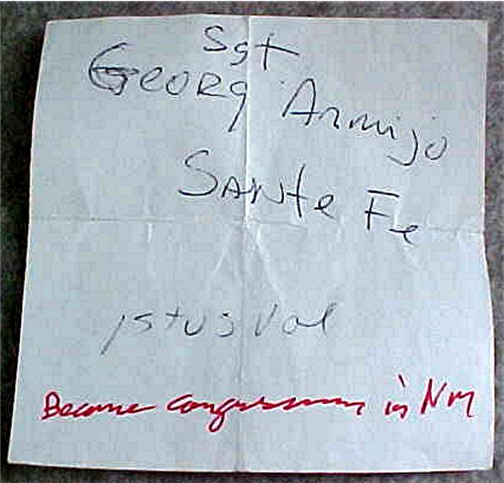 Sgt
Georg Armijo
Sante Fe
1st US Vol
Became congressman in NM